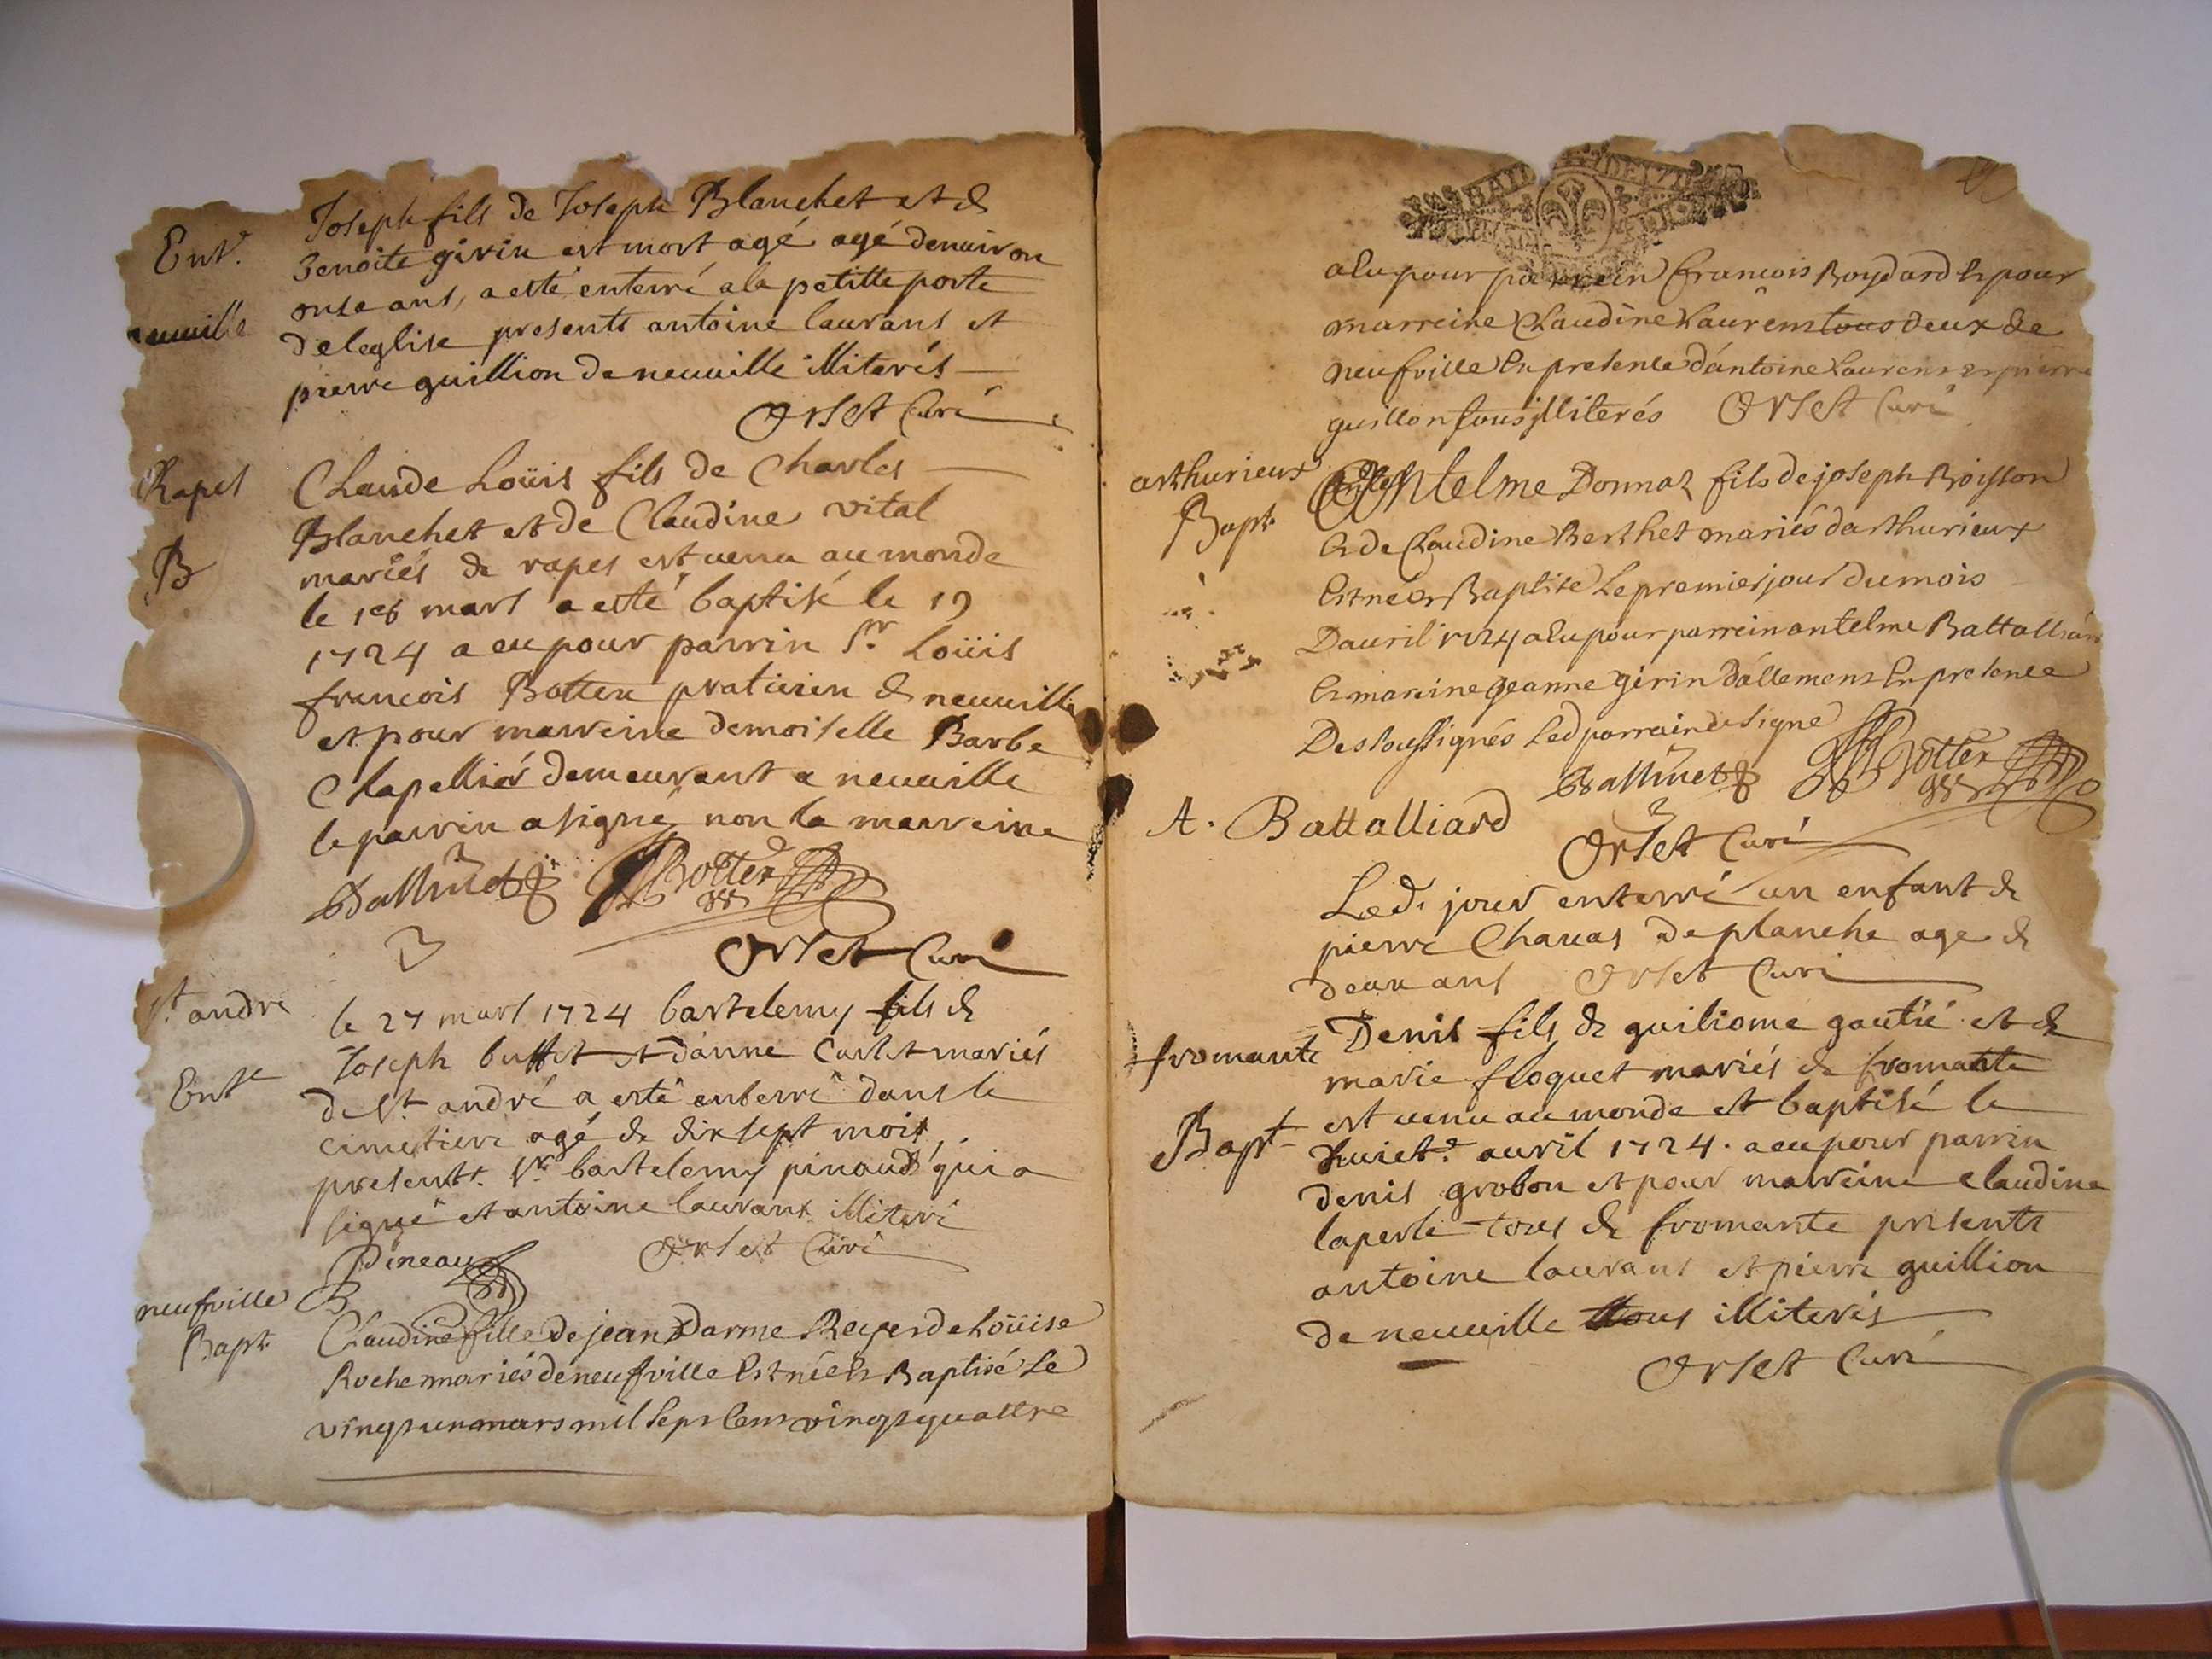 Ent.e
neuville
Joseph fils de Joseph Blanchet et de
Benoite girin est mort agé agé denuiron
onse ans, a esté enterré a la petitte porte
de leglise presents antoine laurans et
pierre guillion de neuuille illiterés
Orset Curé
Rapes
B
Claude Loüis fils de Charles
Blanchet et de Claudine vital
mariés de rapes est uenu au monde
le 18 mars a esté baptisé le 19
1724 a eu pour parrin Sr. Loüis
francois Botten praticien de neuuille
et pour marreine demoiselle Barbe
Chapellier demeurant a neuuille
le parrin a signé non la marreine
Botten
Orset Curé
St. andre
Ent.e
le 27 mars 1724 bartelemy fils de
Joseph buffet et danne mariés
de St. andré a esté enterré dans le
cimetiere agé de dix sept mois,
presents. Sr. bartelemy pinaud qui a
signé et antoine laurans illiteré
Pineau
Orset Curé
neufville
Bapt.
Claudine fille de jean Darme Reyer de Loüise
Roche mariés de neufville Est née Et Baptisé Le
vingt un mars mil Sept Cens vingt quattre
a Eu pour parrein francois Boydard Et pour
marreine Claudine Laurens tous deux de
neufville En presence dantoine Laurens et pierre
guillon tous illiterés Orset Curé
arthurieux
Bapt.
Antelme Donnat fils de joseph Boisson
Et de Claudine Berthet mariés darthurieux
Est né Et Baptise Le premier jour du mois
Dauril 1724 a Eu pour parrein antelme Battalliard
Et marine jeanne girin dallemens En presence
Des soussignés Led parrain a signé
Botten
A. Battalliard
Orset Curé
Led. jour enterré un enfant de
pierre Chauas de planche age de
deux ans Orset Curé
fromante
Bapt.
Denis fils de guiliome gautié et de
marie floquet mariés de fromante
est uenu au monde et baptisé le
huict.e auril 1724. a eu pour parrin
denis grobon et pour marreine claudine
laperle tous de fromante presents
antoine laurans et pierre guillion
de neuuille tous illiterés
Orset Curé